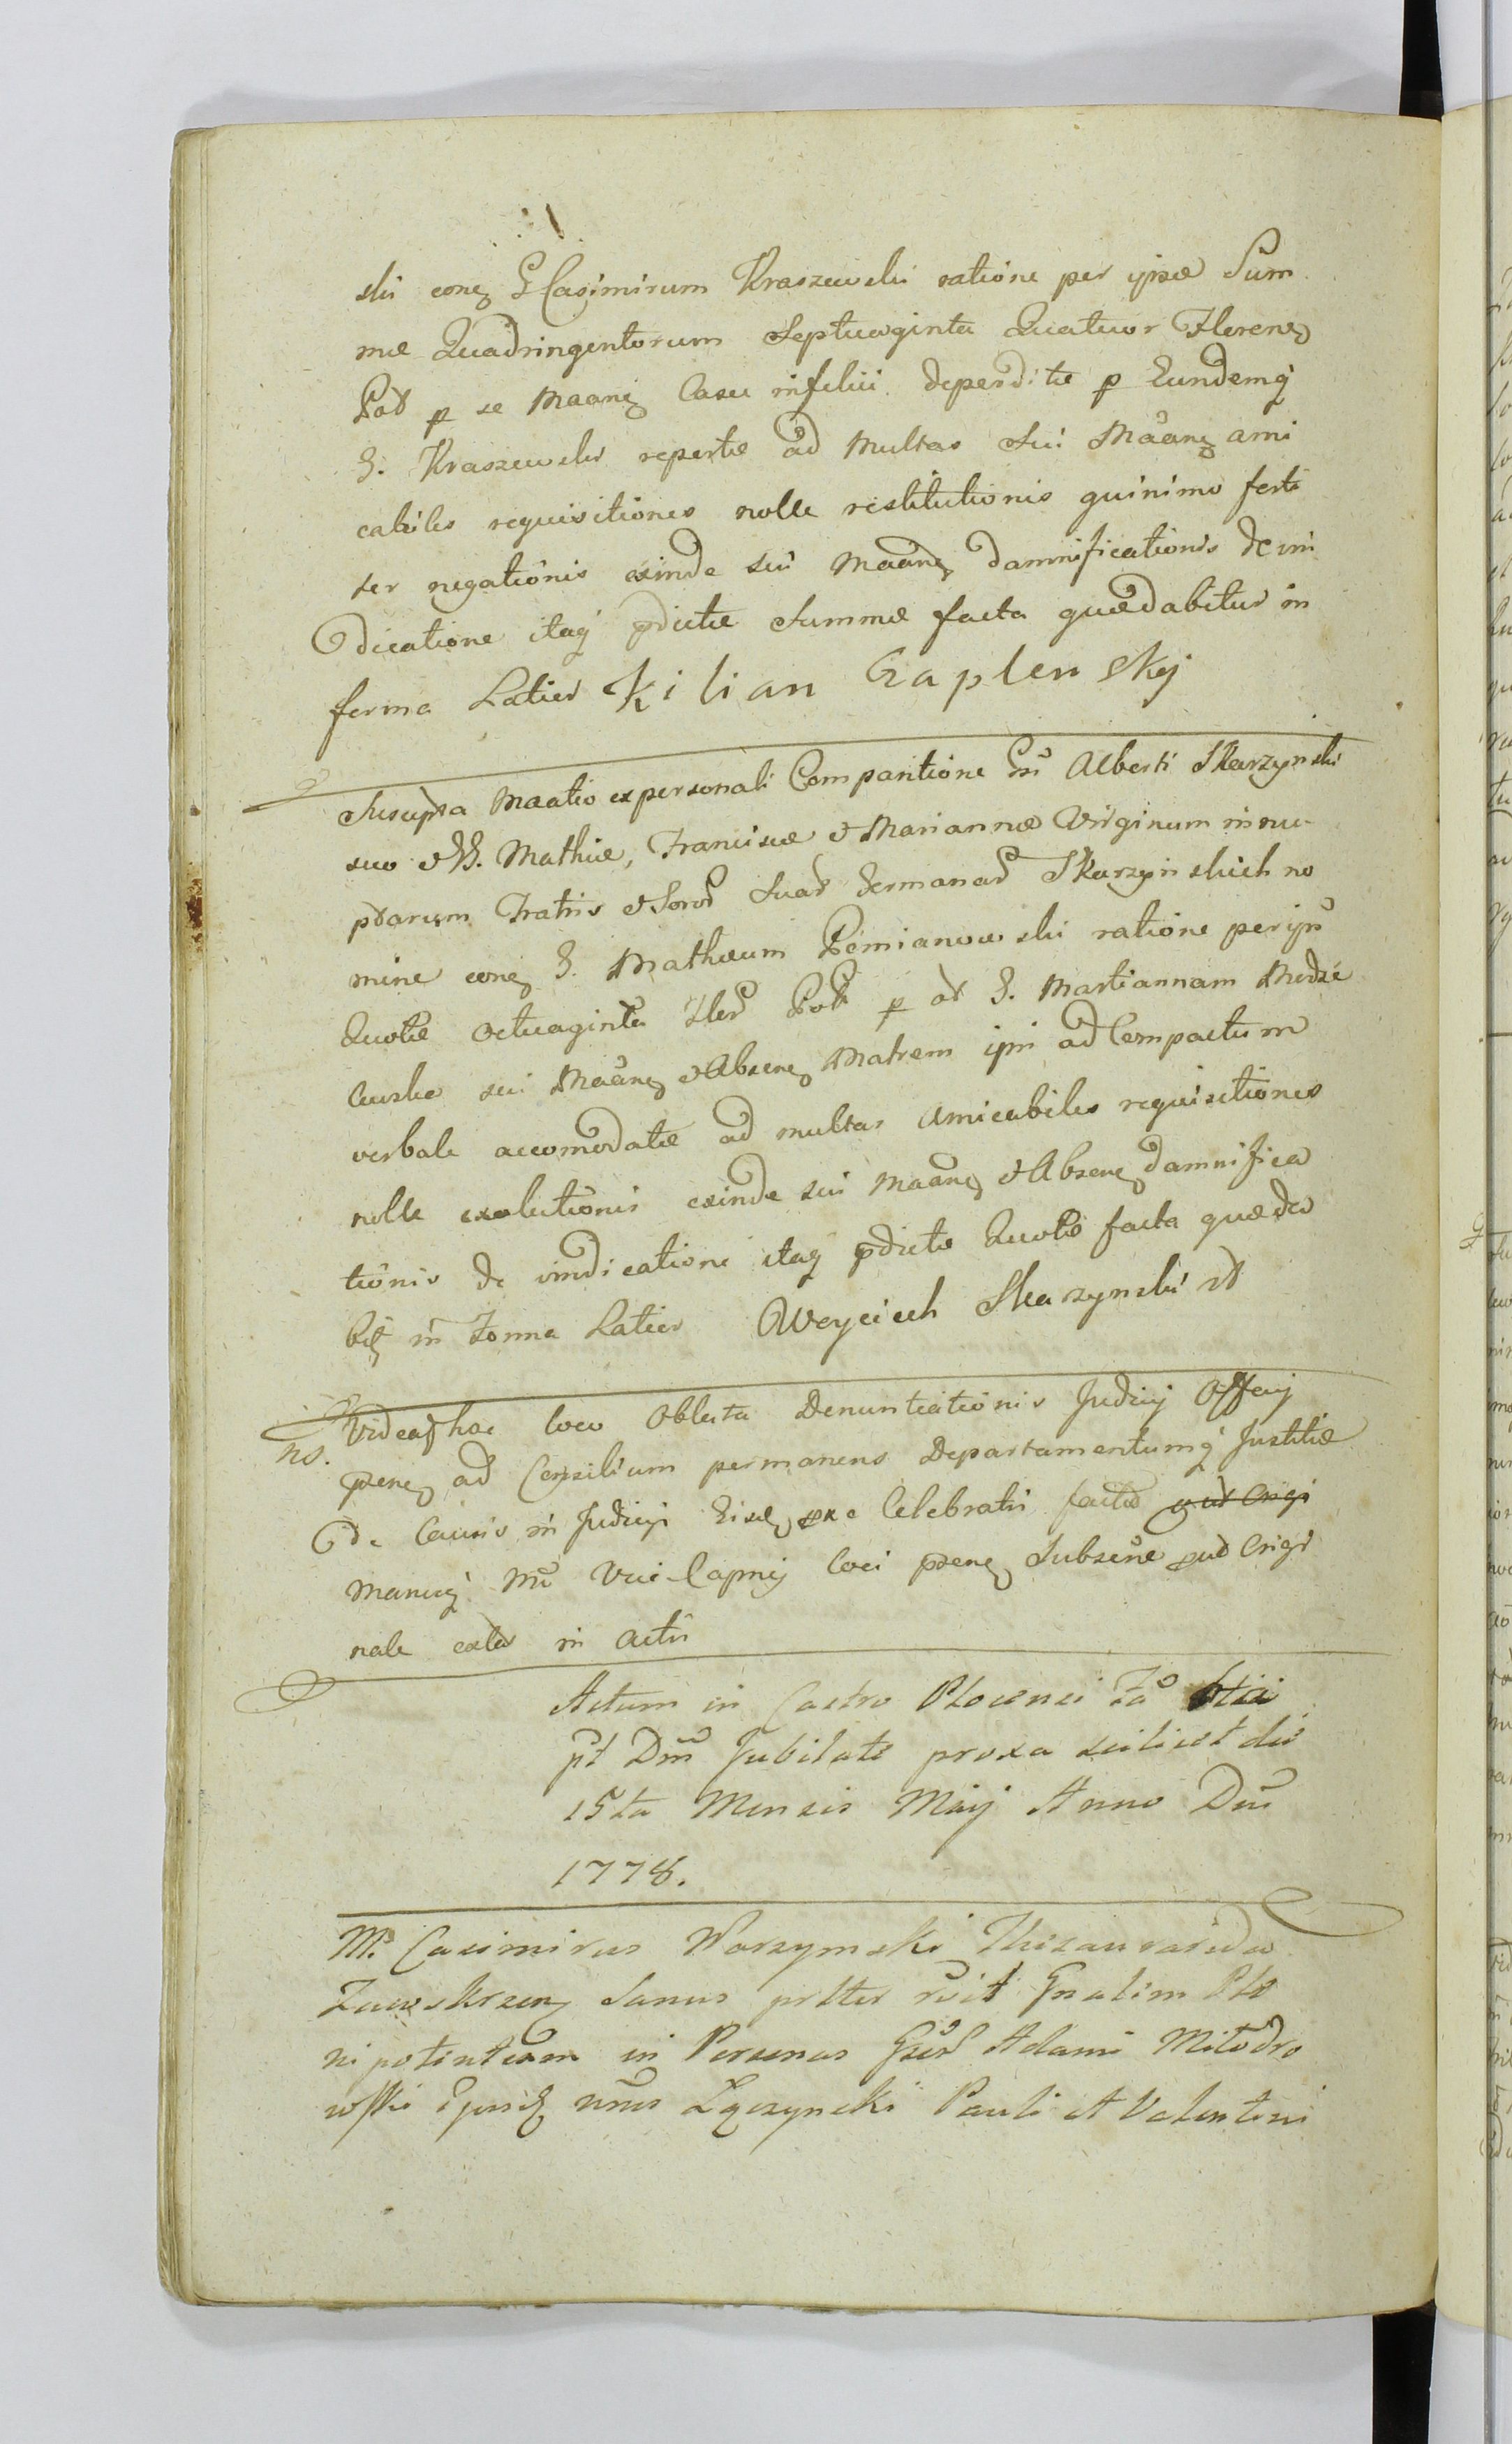 ski coneq G Casimirum Kraszewski ratione per ipsæ Sum
mæ Quadringentorum Septuaginta Quatuor Floreneq
Pol p se Maaneq Casu infelici deperditæ p Eundemq
G. Kraszewski repertæ ad Multas Sui Maaneq ami
cabiles requisitiones nolle restitutionis quinimo forti
ter negationis exinde sui Maaneq damnificationis de vin
dicatione itaq pdictæ Summæ facta quæ dabitur in
forma Latiori Kilian Czaplenskj
Suscepta Maatio ex personali Comparitione Gni Alberti Skarzynski
suo et GG. Mathiæ, Franciscæ et Mariannæ Virginum innu-
ptarum Fratris et Soror Suar Germanar Skarzynskich no
mine coneq G. Mathæum Pomianowski ratione per ipm
Quotæ Octuaginta Flor Pol p ol G. Martiannam Modze
lewska sui Maaneq et Abseneq Matrem ipsi ad Compactum
verbale accomodatæ ad multas Amicabiles requisitiones
nolle exolutionis exinde sui Maaneq et Abseneq damnifica
tionis de vindicatione itaq pdictæ Quotæ facta quæ da
bit in Forma Latiori Woyciech Skarzynski
Videat hoc loco Oblata Denuntiationis Judicij Officij
No. pseneq ad Consilium permanens Departamentumq Justitiæ
de Causis in Judicijs Eisd Celebratis factæ
Manuq Mi Vice-Capnei loci pseneq Subscriæ Origi
nale extat in Actis
Actum in Castro Plocensi Fa 6tia
pt Dnm Jubilate proxa scilicet die
15ta Mensis Maij Anno Dni
1778.
M. Casimirus Worzymski Thesaurarida
Zawskrzeneq Sanus prttus roit Gnalim Ple
nipotentem in Personas Gser Adami Mitodro
wski Ejusd nris Łączynski Pauli et Valentini